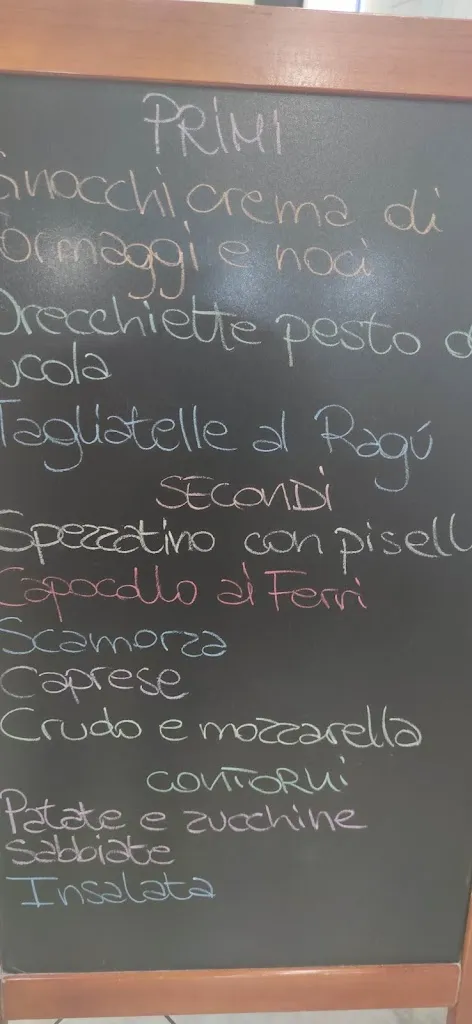 PRIMI
Gnocchi crema di
formaggi e noci
Orecchiette pesto d
ucola
Tagliatelle al Ragú
SECONDI
Spezzatino con pisell
Capocollo ai Ferri
Scamorza
Caprese
Crudo e mozzarella
CONTORNI
Patate e zucchine
Sabbiate
Insalata